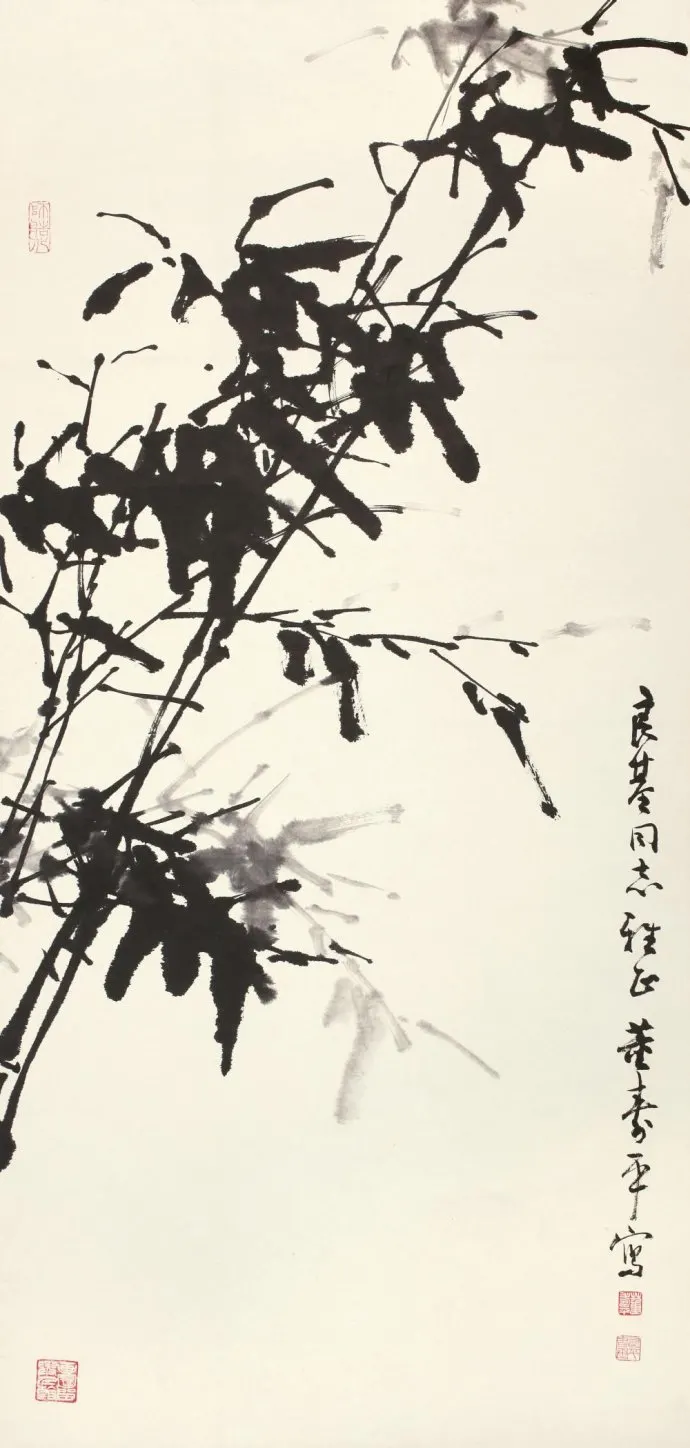 良基同志雅正董寿平寫